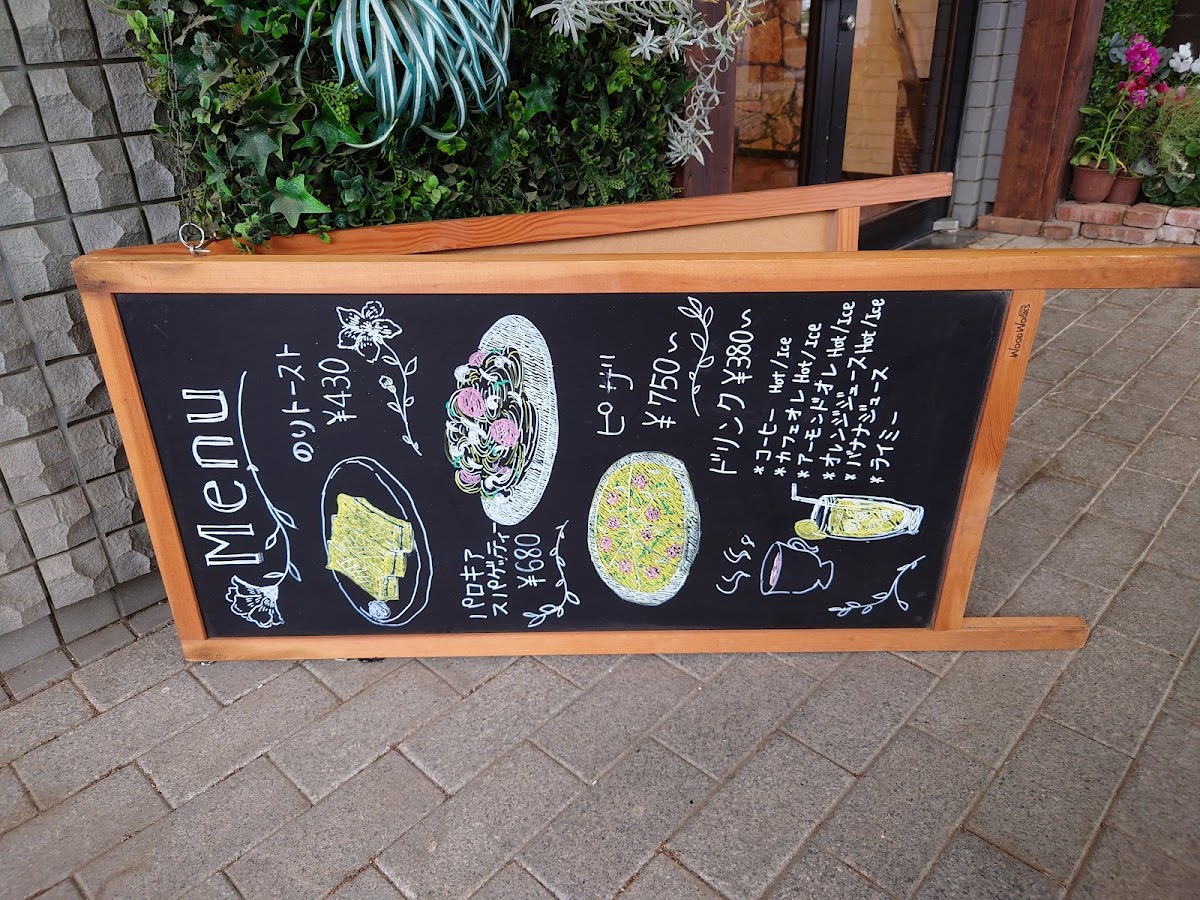 Menu
のりトースト
¥430
パロキア
スパゲッティー
¥680
ピザ
¥750〜
ドリンク ¥380〜
*コーヒー Hot/Ice
*カフェオレ Hot/Ice
*アーモンドオレ Hot/Ice
*オレンジジュース Hot/Ice
*バナナジュース
*ライミー